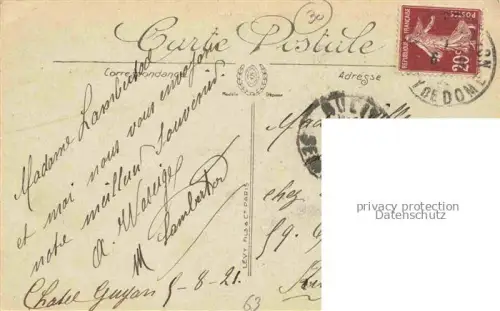 30
Carte Postale
Correspondance
Adresse
REPUBLIQUE FRANÇAISE
POSTES
20c
Madame Lambert
et moi nous vous envoyons
notre meilleur souvenir.
M Lambert
Chatel Guyon 5-8-21
LEVY FILS & Cie PARIS
63
PUY DE DOME
Mada
chez
59.
privacy protection
Datenschutz